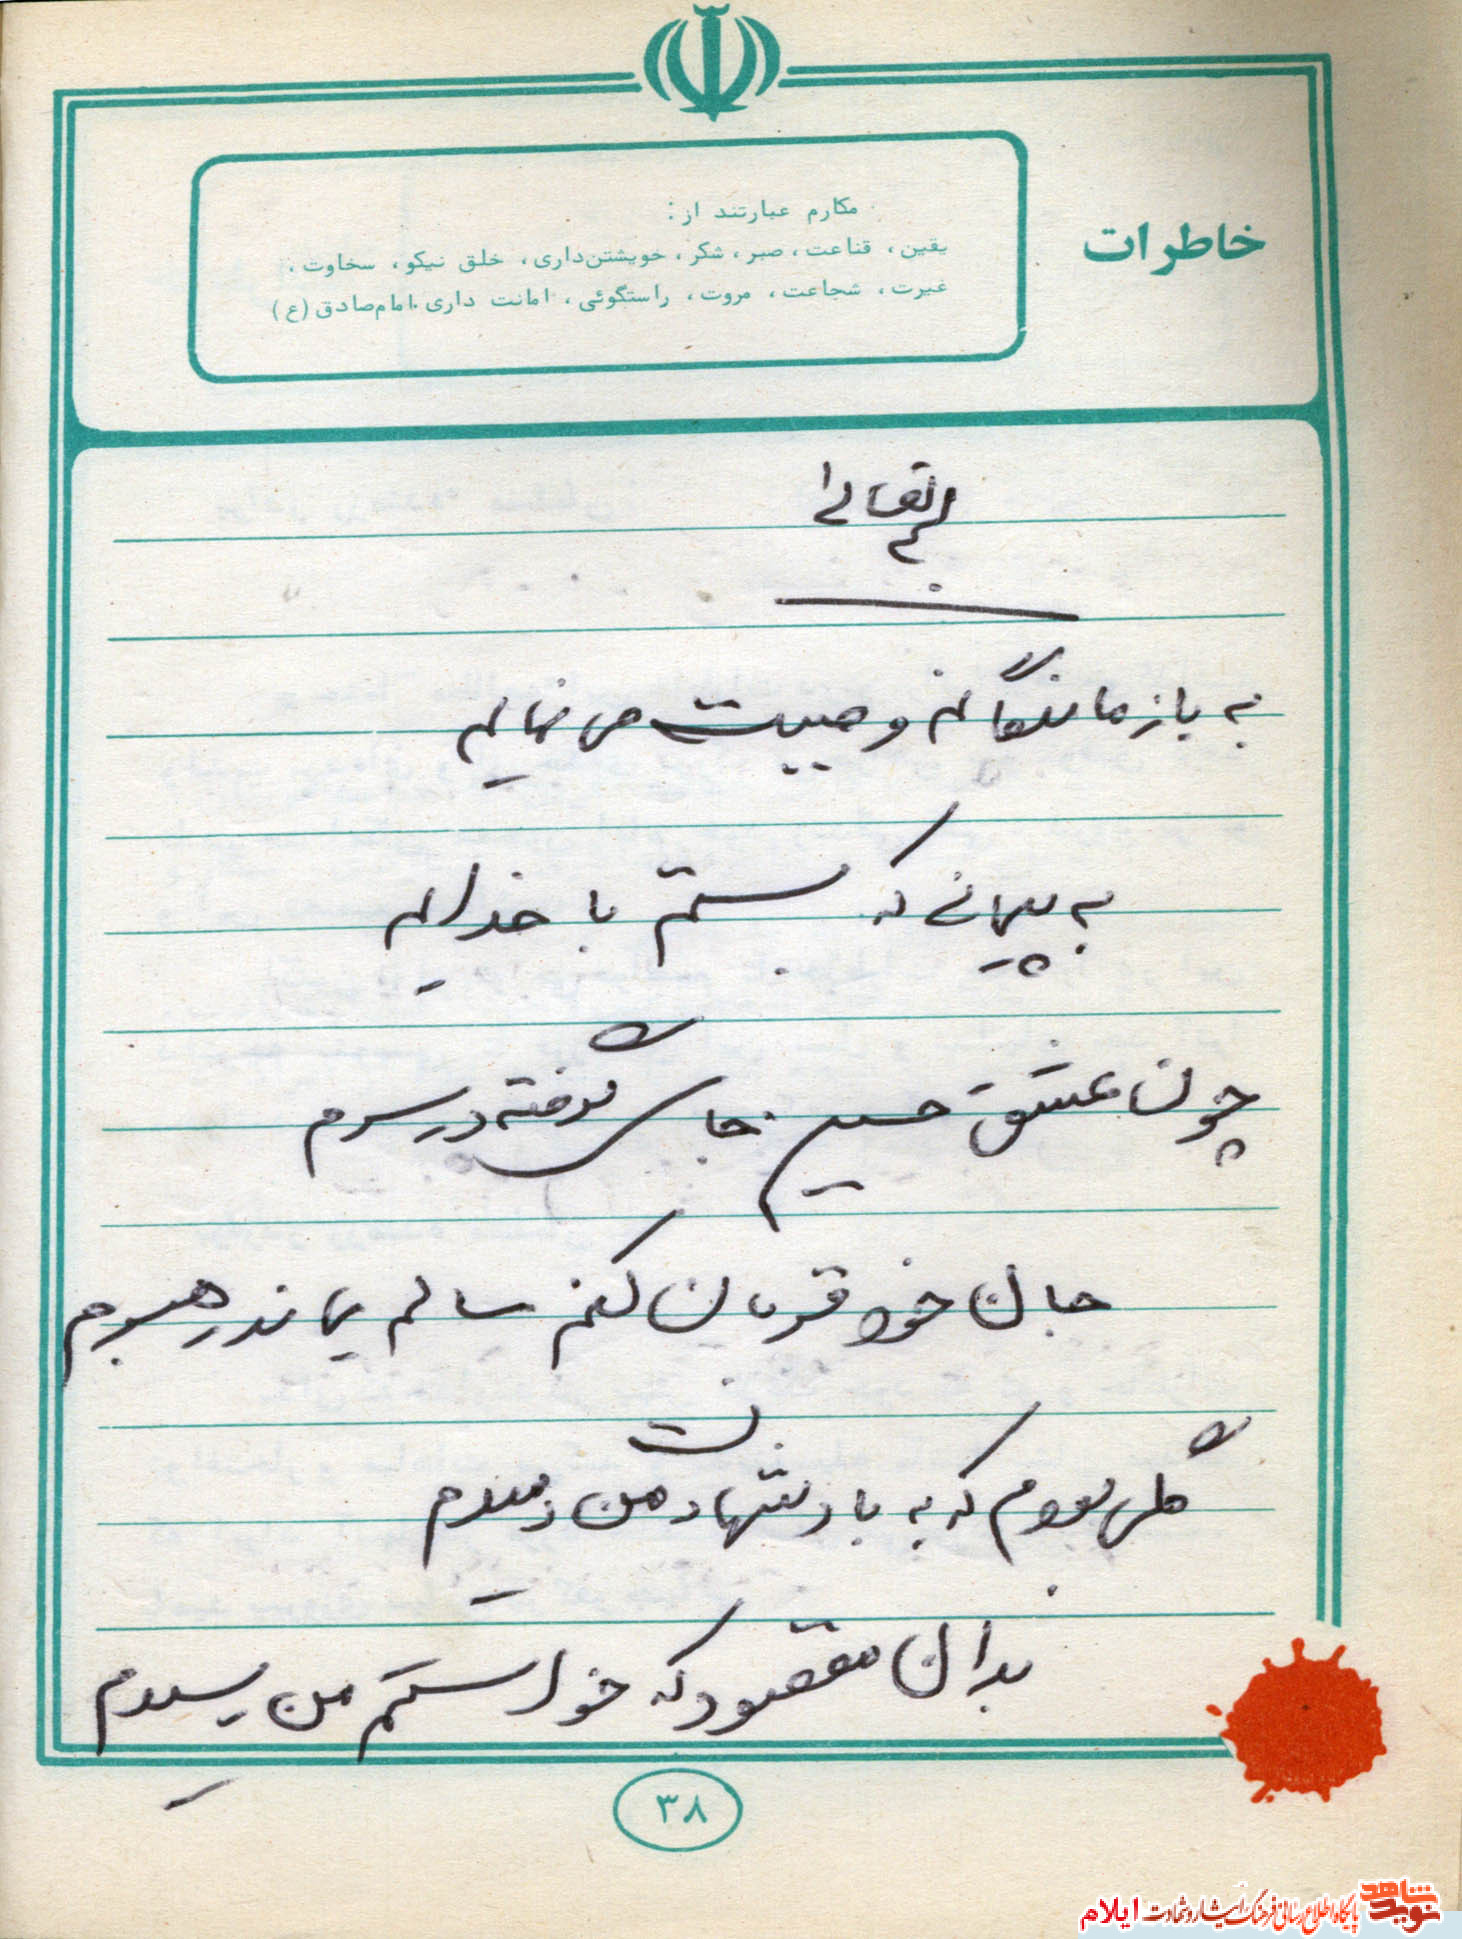 خاطرات
مکارم عبارتند از:
یقین، قناعت، صبر، شکر، خویشتن‌داری، خلق نیکو، سخاوت،
غیرت، شجاعت، مروت، راستگوئی، امانت داری. امام صادق (ع)
بسم تعالی
به بازماندگانم وصییت می نمایم
به پیمانی که بستم با خدایم
چون عشق حسین جای گرفته در سرم
جان خود قربان کنم سالم بماند رهبرم
گلی بودم که به باد شهادت من رسیدم
بدان مقصود که خواستم من رسیدم
۳۸
نوید شاهد
پایگاه اطلاع رسانی فرهنگ ایثار و شهادت ایلام